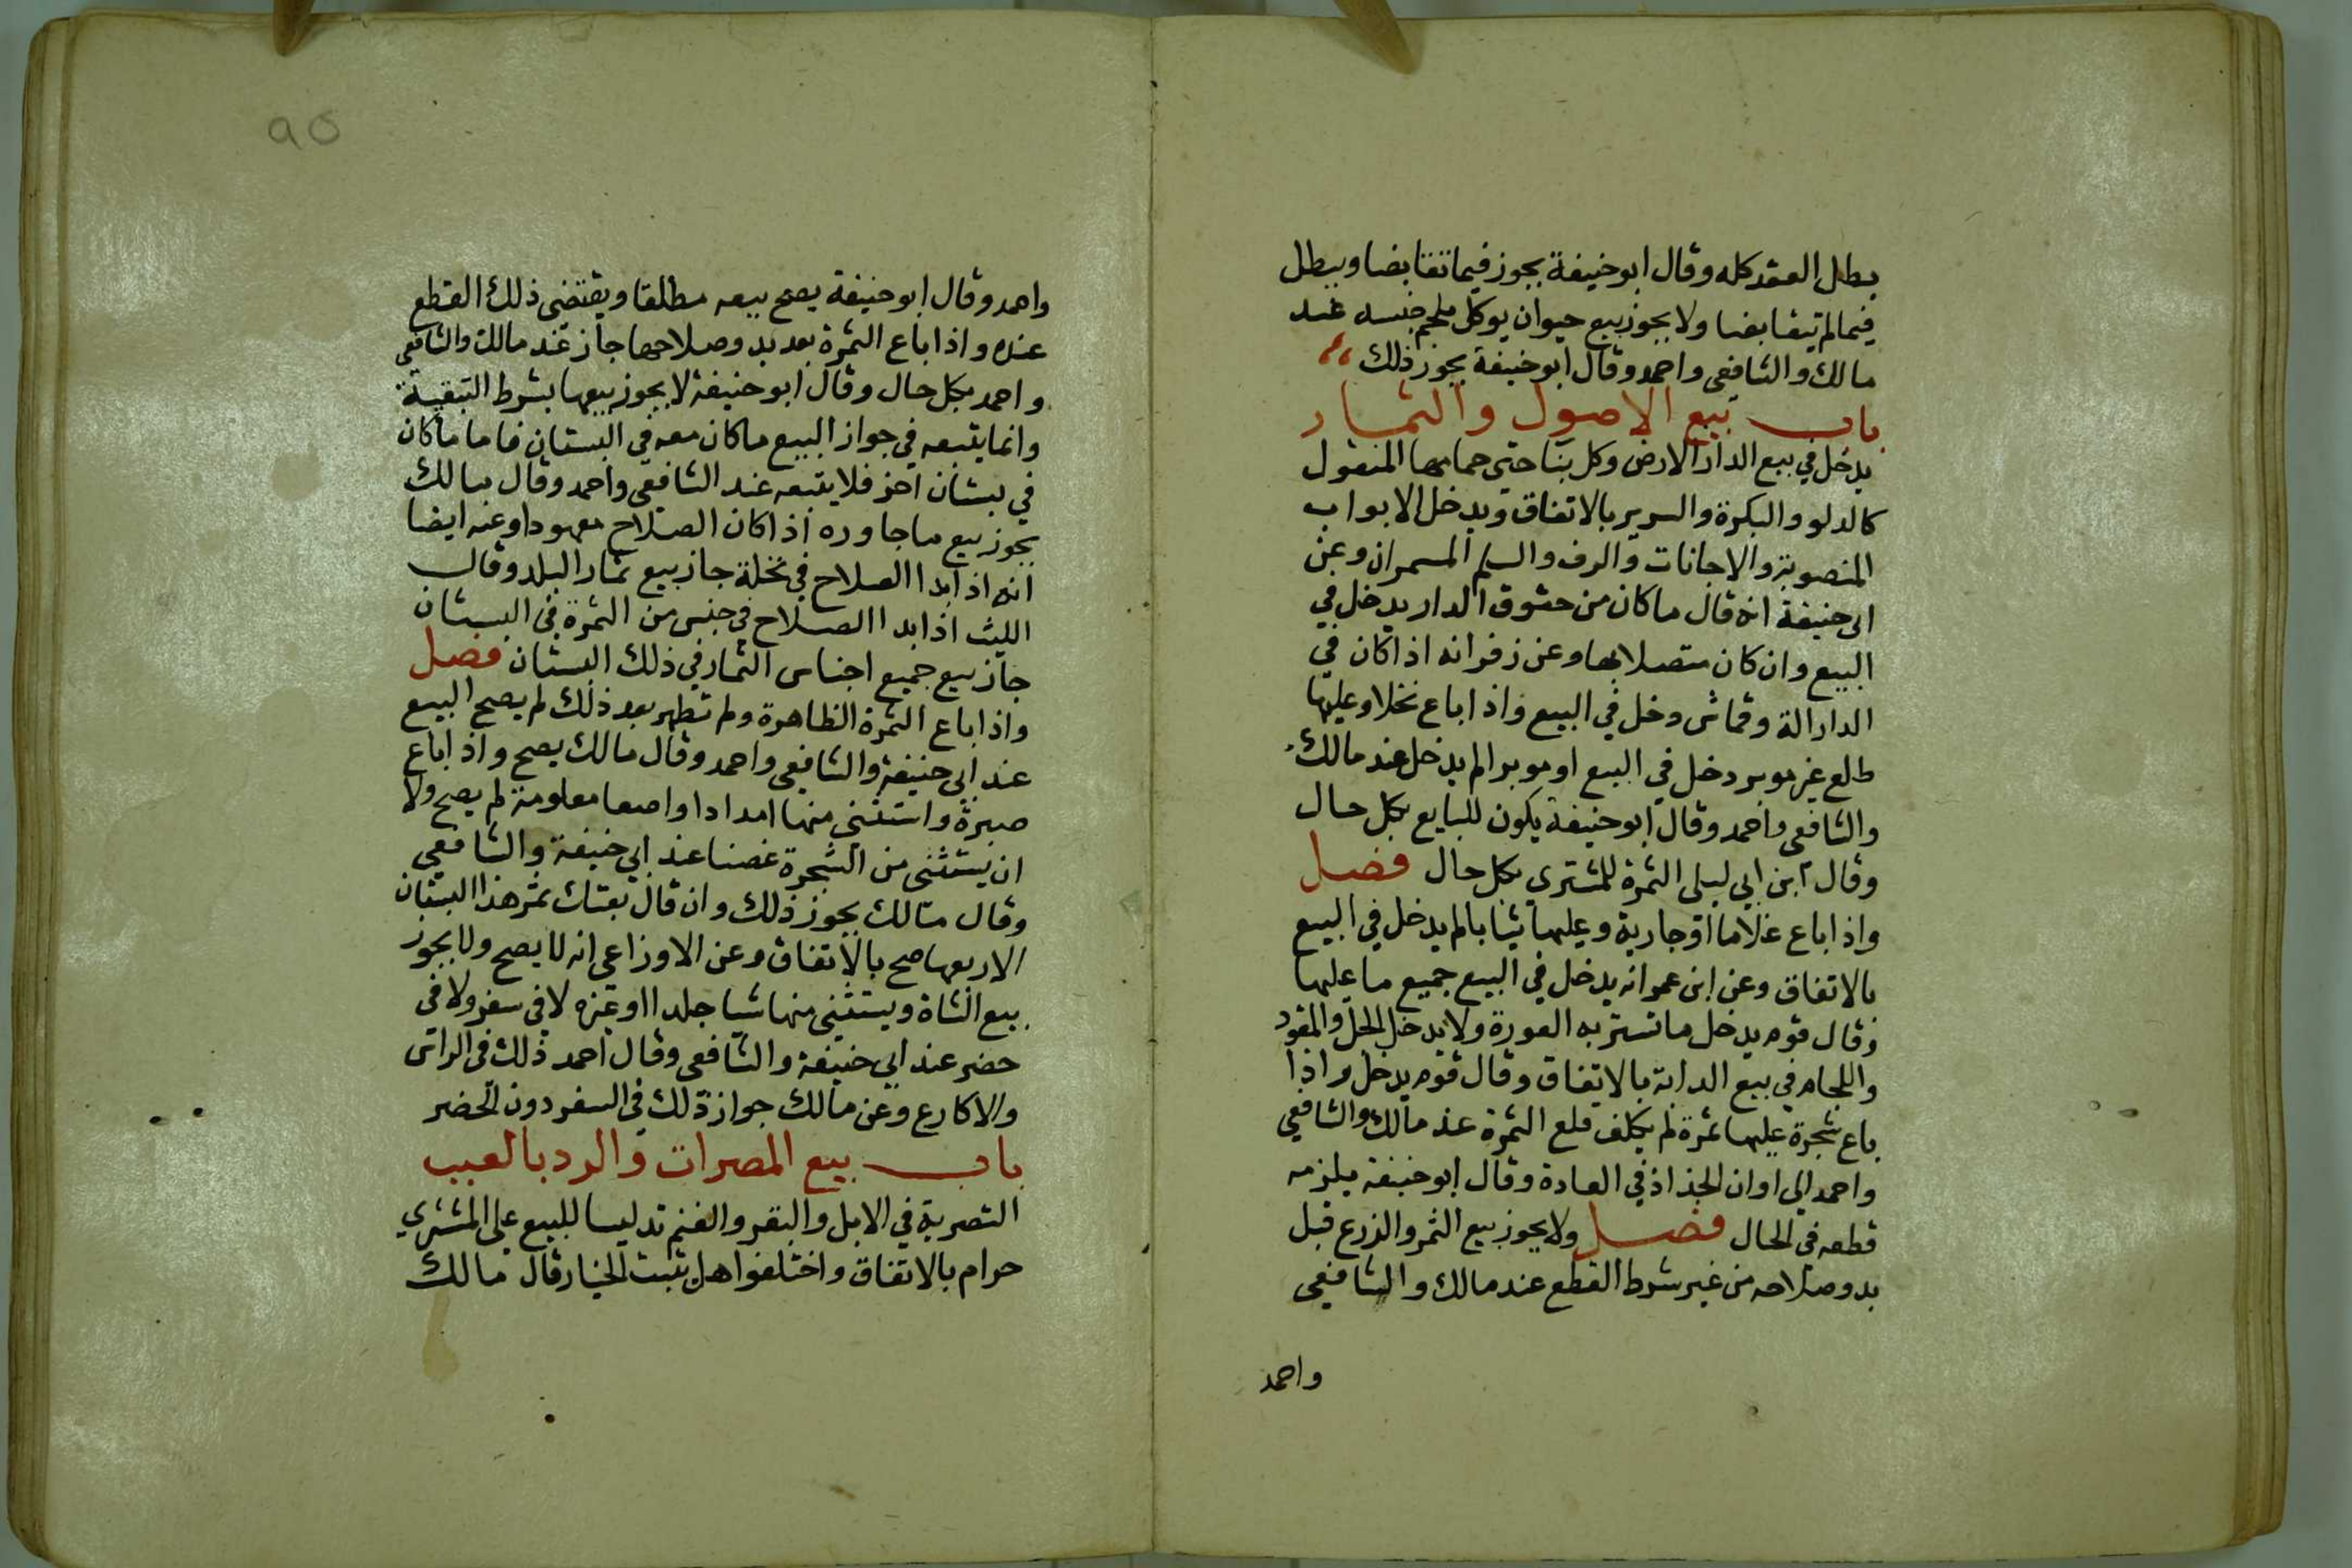 يبطل العقد كله وقال ابو حنيفة يجوز فيما تقابضا ويبطل
فيما لم يتقابضا ولا يجوز بيع حيوان يوكل بلحم جنسه عند
مالك والشافعي واحمد وقال ابو حنيفة يجوز ذلك
باب بيع الاصول والثمار
يدخل في بيع الدار الارض وكل بنا حتى حمامها المنقول
كالدلو والبكرة والسرير بالاتفاق ويدخل الابواب
المنصوبة والاجانات والرف والسلم المسمران وعن
ابي حنيفة انه قال ما كان من حقوق الدار يدخل في
البيع وان كان متصلا بها وعن زفر انه اذا كان في
الدار الة وقماش دخل في البيع واذا باع نخلا وعليها
طلع غير موبر دخل في البيع او موبرا لم يدخل عند مالك
والشافعي واحمد وقال ابو حنيفة يكون للبايع بكل حال
وقال ابن ابي ليلى الثمرة للمشتري بكل حال فصل
واذا باع غلاما او جارية وعليها ثيابا لم يدخل في البيع
بالاتفاق وعن ابن عمر انه يدخل في البيع جميع ما عليها
وقال قوم يدخل ما تستر به العورة ولا يدخل الحل والمقود
واللجام في بيع الدابة بالاتفاق وقال قوم يدخل واذا
باع شجرة عليها ثمرة لم يكلف قلع الثمرة عند مالك والشافعي
واحمد الى اوان الجذاذ في العادة وقال ابو حنيفة يلزمه
قطعه في الحال فصل ولا يجوز بيع الثمر والزرع قبل
بدو صلاحه من غير شرط القطع عند مالك والشافعي
واحمد
٩٥
واحمد وقال ابو حنيفة يصح بيعه مطلقا ويقتضي ذلك القطع
عنده واذا باع الثمرة بعد بدو صلاحها جاز عند مالك والشافعي
واحمد بكل حال وقال ابو حنيفة لا يجوز بيعها بشرط التبقية
وانما يتبعه في جواز البيع ما كان معه في البستان فاما ما كان
في بستان اخر فلا يتبعه عند الشافعي واحمد وقال مالك
يجوز بيع ما جاوره اذا كان الصلاح معهودا وعنه ايضا
انه اذا بدا الصلاح في نخلة جاز بيع ثمار البلد وقال
الليث اذا بدا الصلاح في جنس من الثمرة في البستان
جاز بيع جميع اجناس الثمار في ذلك البستان فصل
واذا باع الثمرة الظاهرة ولم تظهر بعد ذلك لم يصح البيع
عند ابي حنيفة والشافعي واحمد وقال مالك يصح واذا باع
صبرة واستثنى منها امدادا واصعا معلومة لم يصح ولا
ان يستثنى من الشجرة غصنا عند ابي حنيفة والشافعي
وقال مالك يجوز ذلك وان قال بعتك ثمر هذا البستان
الا ربعها صح بالاتفاق وعن الاوزاعي انه لا يصح ولا يجوز
بيع الشاة ويستثنى منها شيا جلدا او غيره لا في سفر ولا في
حضر عند ابي حنيفة والشافعي وقال احمد ذلك في الراس
والاكارع وعن مالك جواز ذلك في السفر دون الحضر
باب بيع المصرات والرد بالعيب
التصرية في الابل والبقر والغنم تدليسا للبيع على المشتري
حرام بالاتفاق واختلفوا هل يثبت الخيار قال مالك